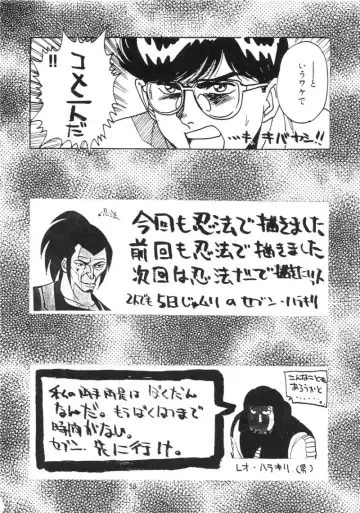 ——と
いうワケで
コメントだ
!!
…も、キバヤシ!!
忍法
今回も忍法で描きました
前回も忍法で描きました
次回は忍法だで描きたい
それでも 5日じゃムリ のセブン・ハラキリ
こんなことも
あろうかと…
私の両手両足は ばくだん
なんだ。もうばくはつまで
時間がない。
セブン、先に行け。
レオ・ハラキリ(男)